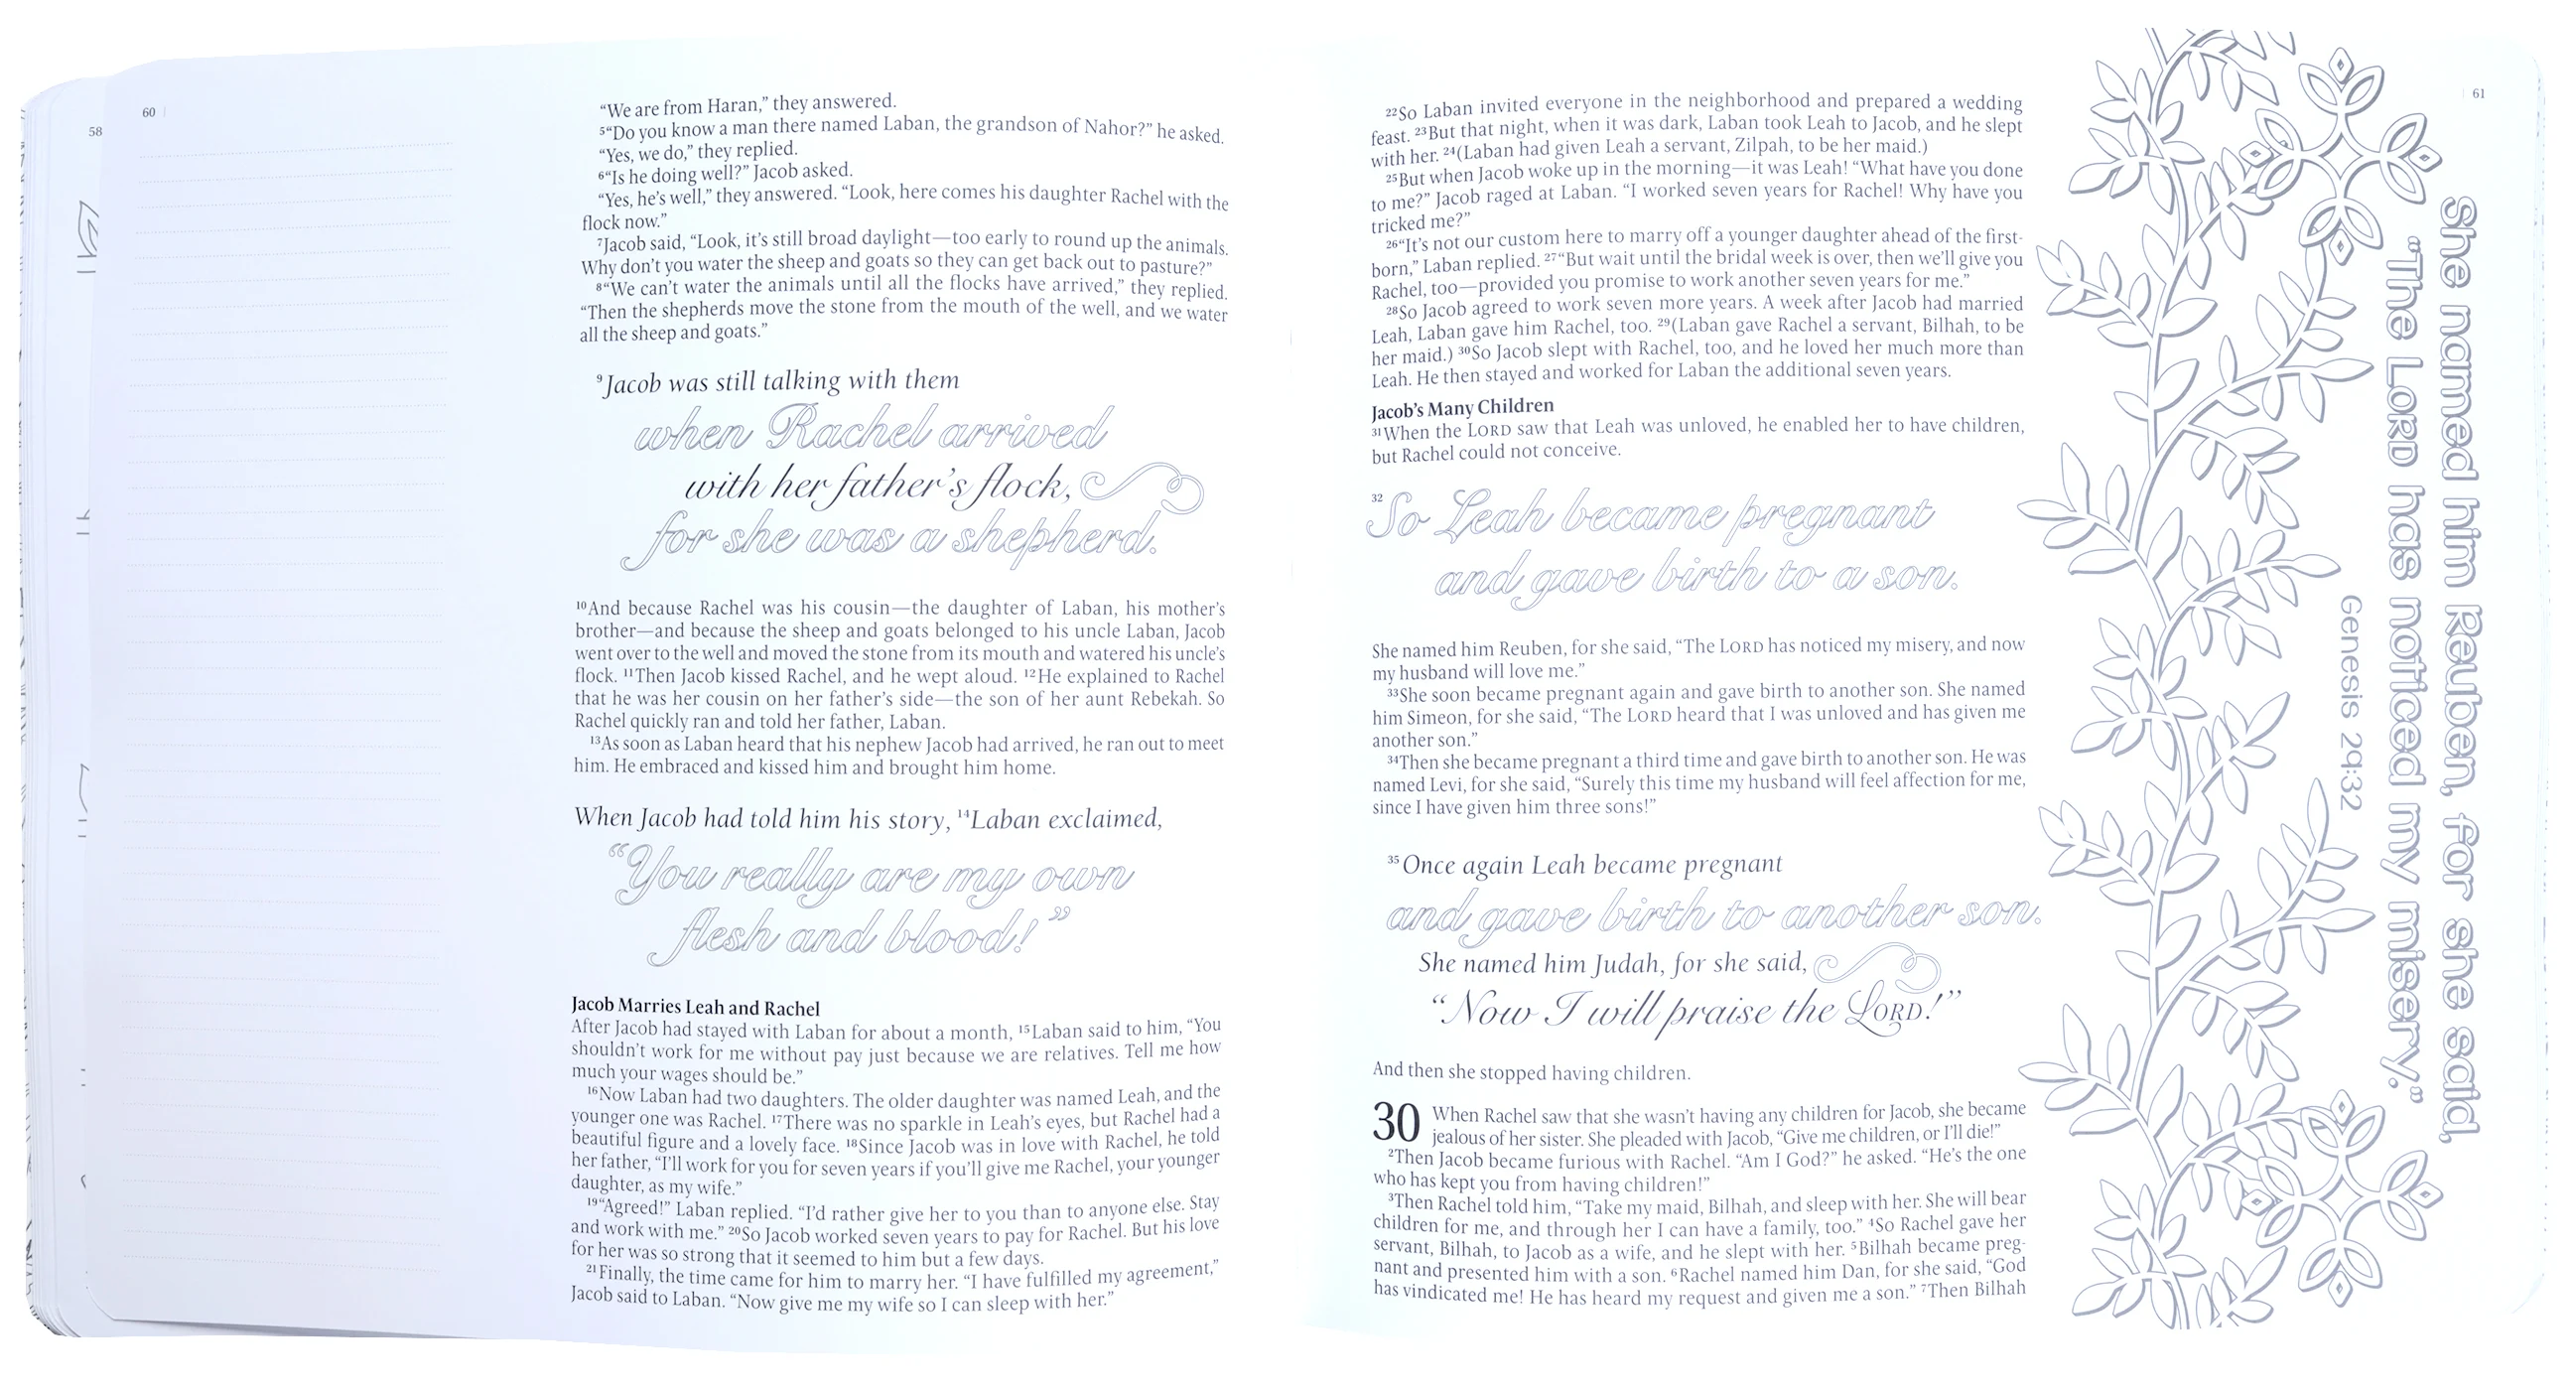 58
60
“We are from Haran,” they answered.
5“Do you know a man there named Laban, the grandson of Nahor?” he asked.
“Yes, we do,” they replied.
6“Is he doing well?” Jacob asked.
“Yes, he’s well,” they answered. “Look, here comes his daughter Rachel with the
flock now.”
7Jacob said, “Look, it’s still broad daylight—too early to round up the animals.
Why don’t you water the sheep and goats so they can get back out to pasture?”
8“We can’t water the animals until all the flocks have arrived,” they replied.
“Then the shepherds move the stone from the mouth of the well, and we water
all the sheep and goats.”
9Jacob was still talking with them
when Rachel arrived
with her father’s flock,
for she was a shepherd.
10And because Rachel was his cousin—the daughter of Laban, his mother’s
brother—and because the sheep and goats belonged to his uncle Laban, Jacob
went over to the well and moved the stone from its mouth and watered his uncle’s
flock. 11Then Jacob kissed Rachel, and he wept aloud. 12He explained to Rachel
that he was her cousin on her father’s side—the son of her aunt Rebekah. So
Rachel quickly ran and told her father, Laban.
13As soon as Laban heard that his nephew Jacob had arrived, he ran out to meet
him. He embraced and kissed him and brought him home.
When Jacob had told him his story, 14Laban exclaimed,
“You really are my own
flesh and blood!”
Jacob Marries Leah and Rachel
After Jacob had stayed with Laban for about a month, 15Laban said to him, “You
shouldn’t work for me without pay just because we are relatives. Tell me how
much your wages should be.”
16Now Laban had two daughters. The older daughter was named Leah, and the
younger one was Rachel. 17There was no sparkle in Leah’s eyes, but Rachel had a
beautiful figure and a lovely face. 18Since Jacob was in love with Rachel, he told
her father, “I’ll work for you for seven years if you’ll give me Rachel, your younger
daughter, as my wife.”
19“Agreed!” Laban replied. “I’d rather give her to you than to anyone else. Stay
and work with me.” 20So Jacob worked seven years to pay for Rachel. But his love
for her was so strong that it seemed to him but a few days.
21Finally, the time came for him to marry her. “I have fulfilled my agreement,”
Jacob said to Laban. “Now give me my wife so I can sleep with her.”
22So Laban invited everyone in the neighborhood and prepared a wedding
feast. 23But that night, when it was dark, Laban took Leah to Jacob, and he slept
with her. 24(Laban had given Leah a servant, Zilpah, to be her maid.)
25But when Jacob woke up in the morning—it was Leah! “What have you done
to me?” Jacob raged at Laban. “I worked seven years for Rachel! Why have you
tricked me?”
26“It’s not our custom here to marry off a younger daughter ahead of the first-
born,” Laban replied. 27“But wait until the bridal week is over, then we’ll give you
Rachel, too—provided you promise to work another seven years for me.”
28So Jacob agreed to work seven more years. A week after Jacob had married
Leah, Laban gave him Rachel, too. 29(Laban gave Rachel a servant, Bilhah, to be
her maid.) 30So Jacob slept with Rachel, too, and he loved her much more than
Leah. He then stayed and worked for Laban the additional seven years.
Jacob’s Many Children
31When the LORD saw that Leah was unloved, he enabled her to have children,
but Rachel could not conceive.
32So Leah became pregnant
and gave birth to a son.
She named him Reuben, for she said, “The LORD has noticed my misery, and now
my husband will love me.”
33She soon became pregnant again and gave birth to another son. She named
him Simeon, for she said, “The LORD heard that I was unloved and has given me
another son.”
34Then she became pregnant a third time and gave birth to another son. He was
named Levi, for she said, “Surely this time my husband will feel affection for me,
since I have given him three sons!”
35Once again Leah became pregnant
and gave birth to another son.
She named him Judah, for she said,
“Now I will praise the LORD!”
And then she stopped having children.
30 When Rachel saw that she wasn’t having any children for Jacob, she became
jealous of her sister. She pleaded with Jacob, “Give me children, or I’ll die!”
2Then Jacob became furious with Rachel. “Am I God?” he asked. “He’s the one
who has kept you from having children!”
3Then Rachel told him, “Take my maid, Bilhah, and sleep with her. She will bear
children for me, and through her I can have a family, too.” 4So Rachel gave her
servant, Bilhah, to Jacob as a wife, and he slept with her. 5Bilhah became preg-
nant and presented him with a son. 6Rachel named him Dan, for she said, “God
has vindicated me! He has heard my request and given me a son.” 7Then Bilhah
61
She named him Reuben, for she said,
“The LORD has noticed my misery.”
Genesis 29:32